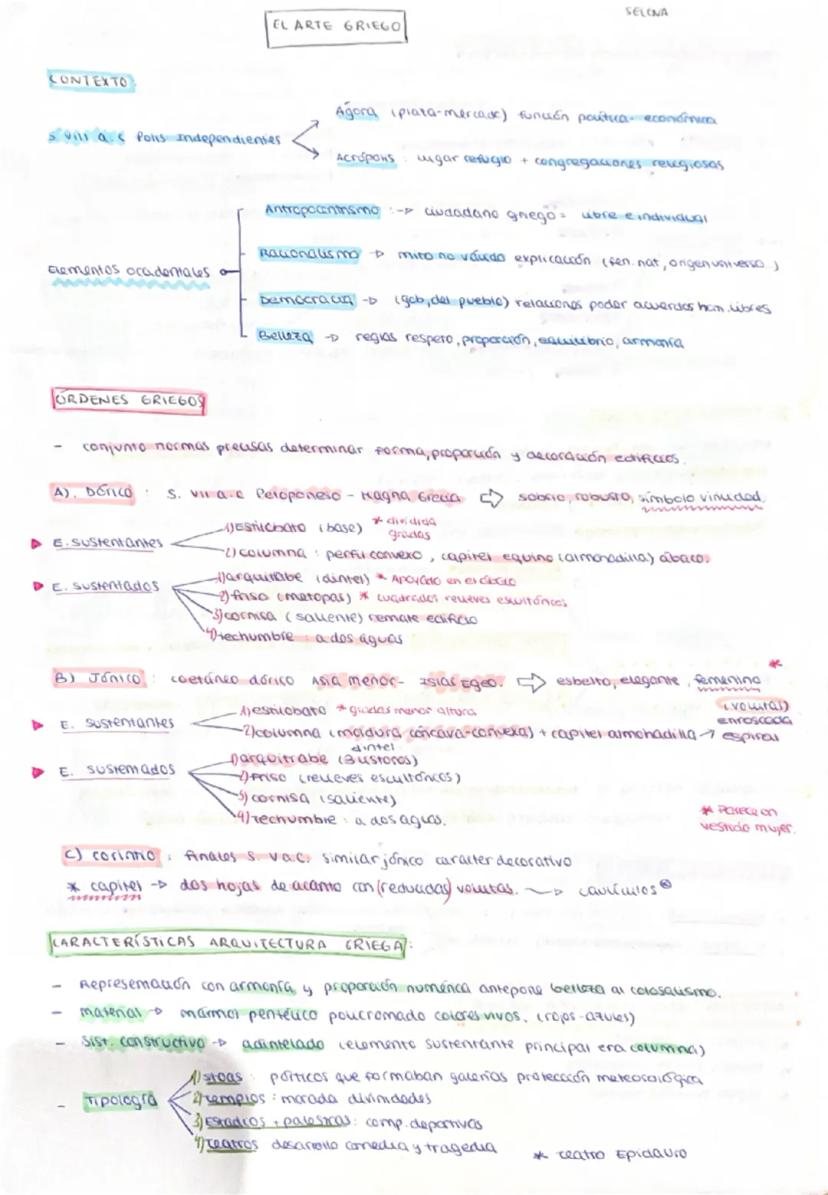 SELENA
EL ARTE GRIEGO
CONTEXTO
S VIII a.C Polis Independientes
Ágora (plaza-mercado) función política-económica
Acrópolis : lugar refugio + congregaciones religiosas
Elementos occidentales
Antropocentrismo :-> ciudadano griego = libre e individual
Racionalismo -> mito no válido explicación (fen. nat, origen universo)
Democracia -> (gob, del pueblo) relaciones poder acuerdos hom. libres
Belleza -> reglas respeto, proporción, equilibrio, armonía
ÓRDENES GRIEGOS
- conjunto normas precisas determinar forma, proporción y decoración edificios.
A). Dórico : S. VII a.C Peloponeso - Magna Grecia => sobrio, robusto, símbolo virilidad.
E. sustentantes
1) Estilobato (base) * dividida gradas
2) columna : perfil convexo, capitel equino (almohadilla) ábaco.
E. sustentados
1) arquitrabe (dintel) * Apoyado en el ábaco
2) friso (metopas) * cuadrados relieves escultóricos
3) cornisa (saliente) remate edificio
4) techumbre : a dos aguas
B) Jónico : coetáneo dórico Asia menor - Islas Egeo. => esbelto, elegante, femenino *
E. sustentantes
1) estilobato * gradas menor altura
2) columna (moldura cóncava-convexa) + capitel almohadilla -> (volutas) enroscada espiral
E. sustentados
dintel
1) arquitrabe (3 listones)
2) friso (relieves escultóricos)
3) cornisa (saliente)
4) techumbre : a dos aguas.
* Parece un vestido mujer.
C) corintio : finales S. V a.C. similar jónico carácter decorativo
* capitel -> dos hojas de acanto con (reducidas) volutas. ~> caulículos
CARACTERÍSTICAS ARQUITECTURA GRIEGA:
- Representación con armonía y proporción numérica antepone belleza al colosalismo.
- material -> mármol pentélico policromado colores vivos. (rojos-azules)
- Sist. constructivo -> adintelado (elemento sustentante principal era columna)
- Tipología
1) stoas : pórticos que formaban galerías protección meteorológica
2) templos : morada divinidades
3) Estadios + palestras : comp. deportivas
4) teatros desarrollo comedia y tragedia * teatro Epidauro